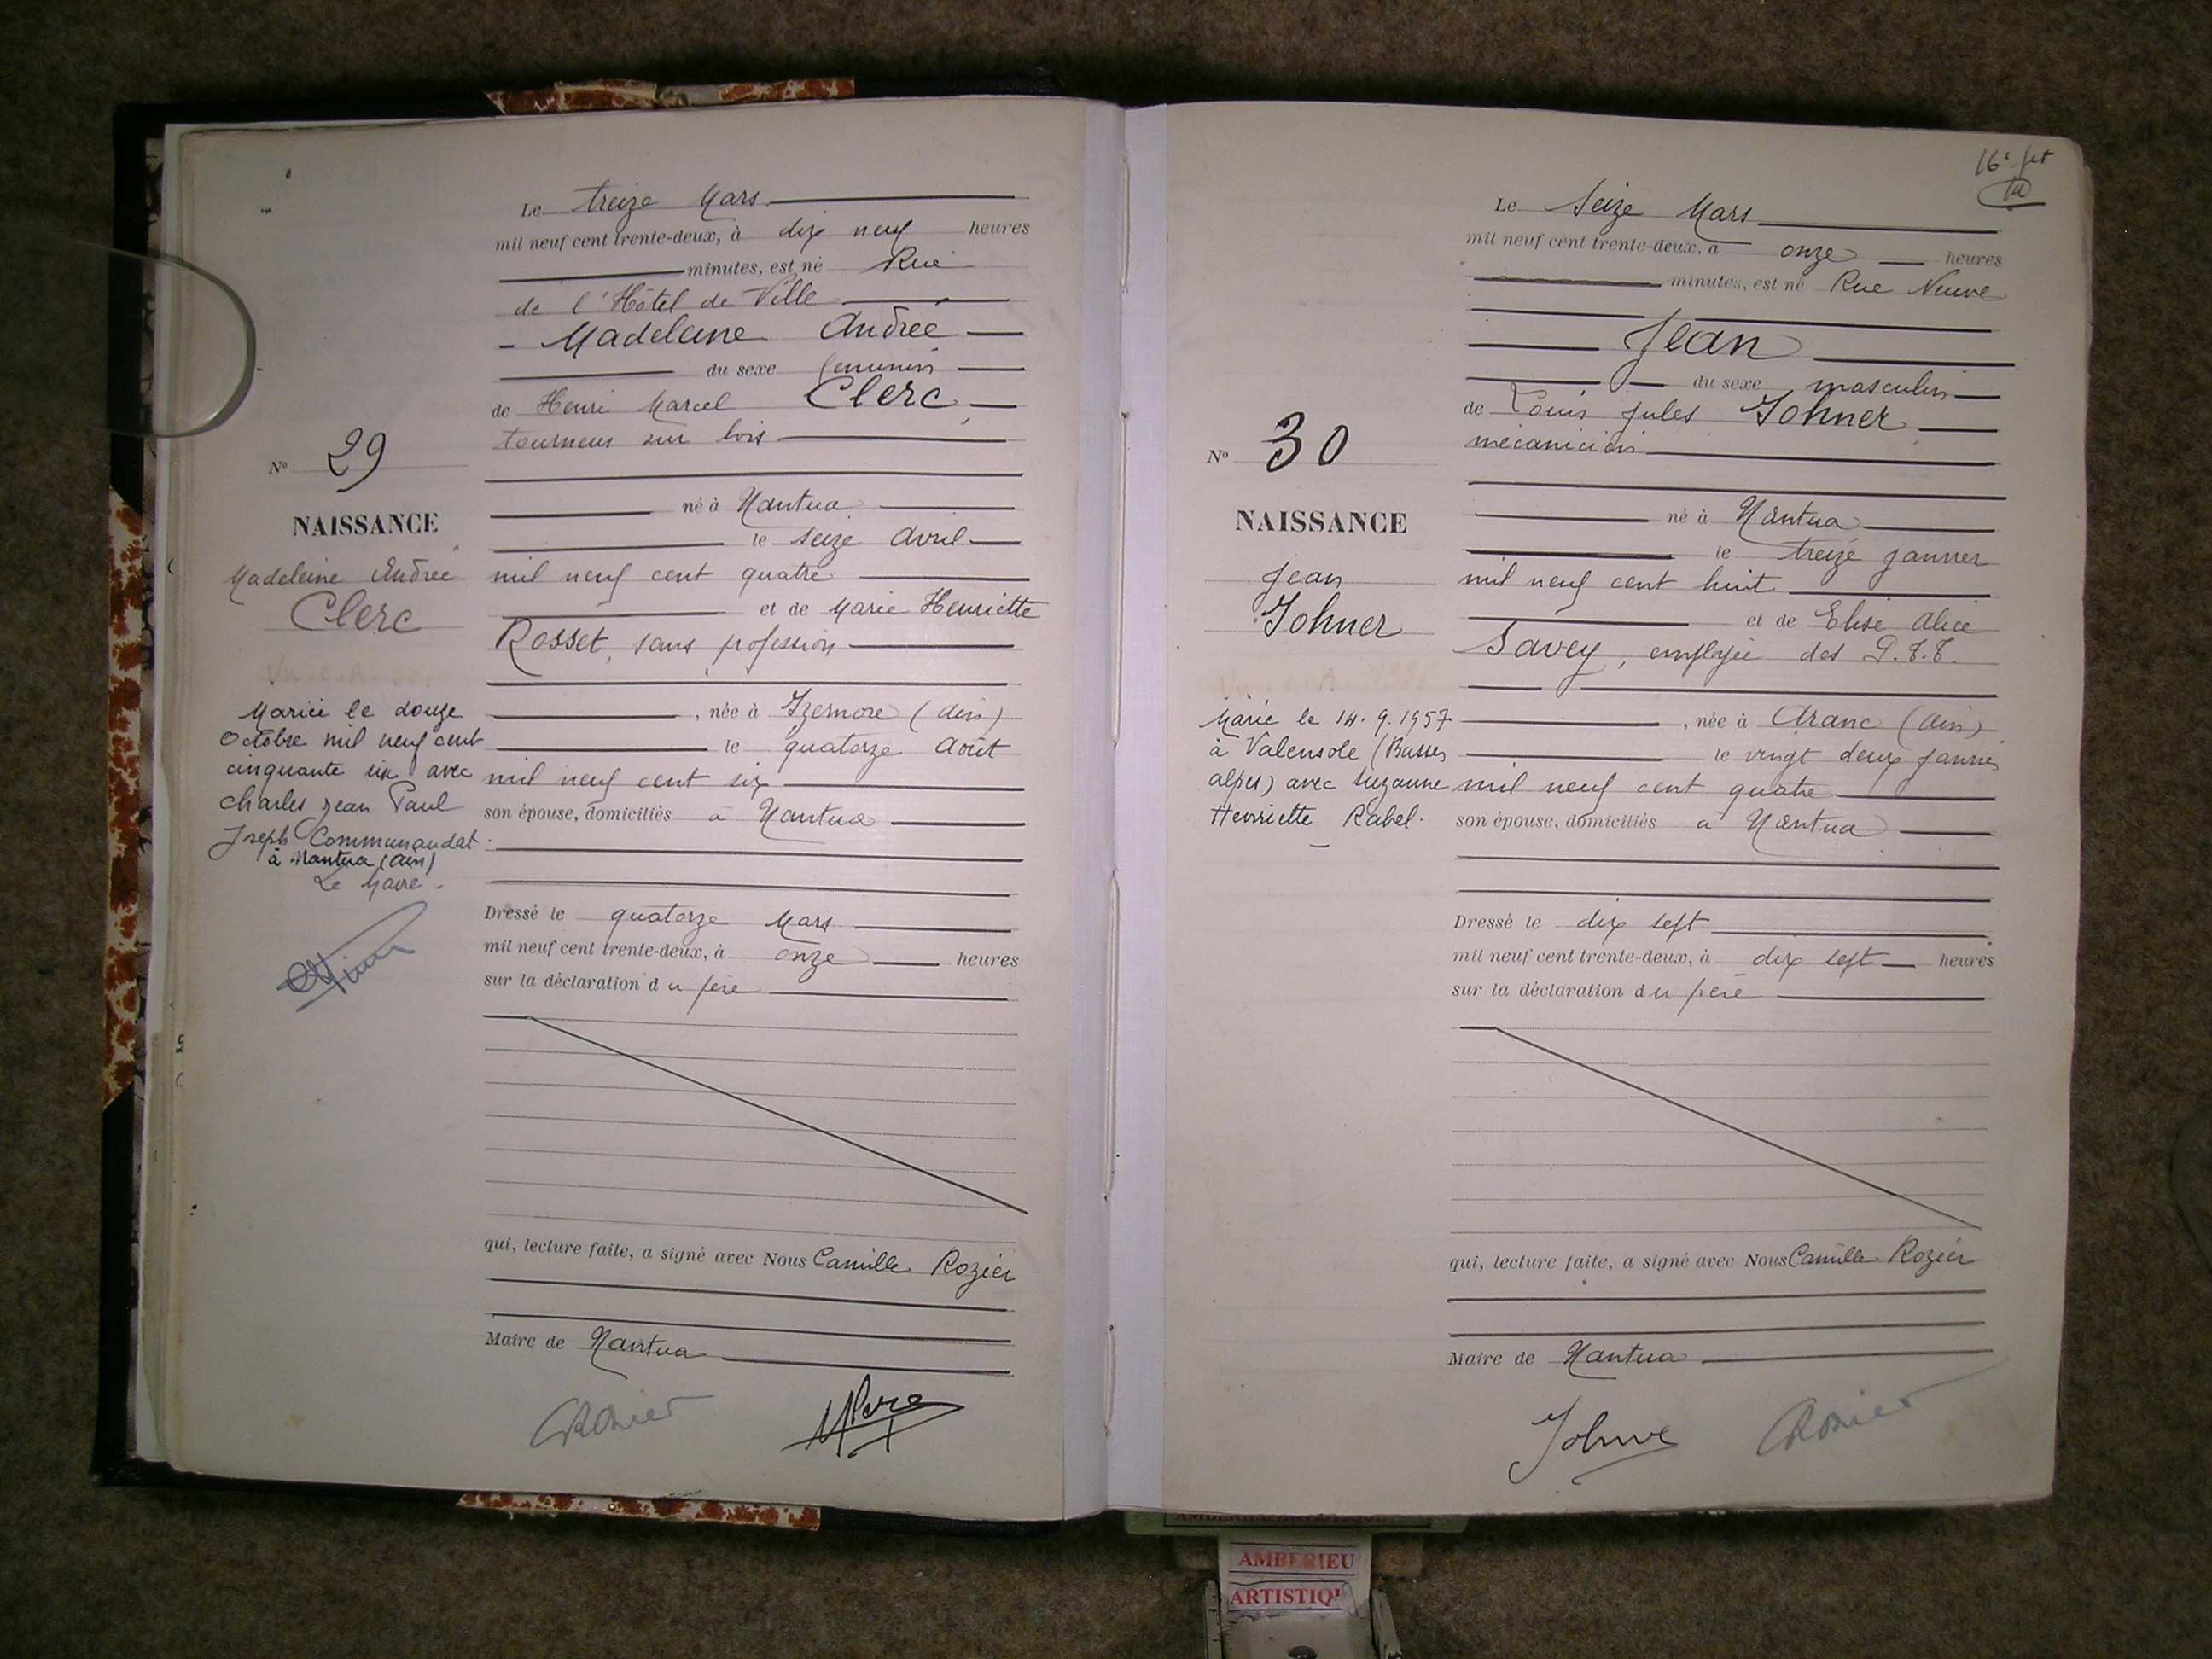 Le treize Mars
mil neuf cent trente-deux, à dix neuf heures
minutes, est né Rue
de l'Hôtel de Ville
Madeleine Andrée
du sexe féminin
de Henri Marcel Clerc,
tourneur sur bois
N° 29
NAISSANCE
Madeleine Andrée
Clerc
né à Nantua
le seize Avril
mil neuf cent quatre
et de Marie Henriette
Rosset, sans profession
, née à Izernore (Ain)
le quatorze Août
mil neuf cent six
son épouse, domiciliés à Nantua
Mariée le douze
Octobre mil neuf cent
cinquante six avec
Charles Jean Paul
Joseph Communaudat
à Nantua (Ain)
Le Maire.
Dressé le quatorze Mars
mil neuf cent trente-deux, à onze heures
sur la déclaration du père
qui, lecture faite, a signé avec Nous Camille Rozier
Maire de Nantua
CRozier
16e fet
Le Seize Mars
mil neuf cent trente-deux, à onze heures
minutes, est né Rue Neuve
Jean
du sexe masculin
de Louis Jules Johner
mécanicien
N° 30
NAISSANCE
Jean
Johner
né à Nantua
le treize Janvier
mil neuf cent huit
et de Elise Alice
Savey, employée des P.T.T.
, née à Aranc (Ain)
le vingt deux Janvier
mil neuf cent quatre
son épouse, domiciliés à Nantua
Marié le 14.9.1957
à Valensole (Basses
Alpes) avec Suzanne
Henriette Rabel.
Dressé le dix sept
mil neuf cent trente-deux, à dix sept heures
sur la déclaration du père
qui, lecture faite, a signé avec Nous Camille Rozier
Maire de Nantua
Johner CRozier
AMBERIEU
ARTISTIQ